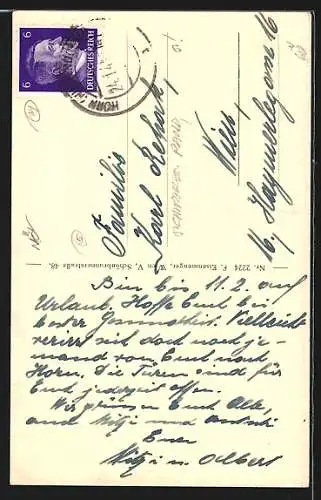 6 DEUTSCHES REICH 6
HORN
24.1.4
Familie
Karl
Wien
16, Haymerlegasse 16
Nr. 2224 F. Eisenmenger, Wien V, Schönbrunnerstraße 48.
Bin bis 11.2. auf
Urlaub. Hoffe Euch bei
bester Gesundheit. Vielleicht
verirrt sich doch noch je-
mand von Euch nach
Horn. Die Türen sind für
Euch jederzeit offen.
Wir grüssen Euch Alle,
auch Mitzi und
Euer
Mitzi u. Albert